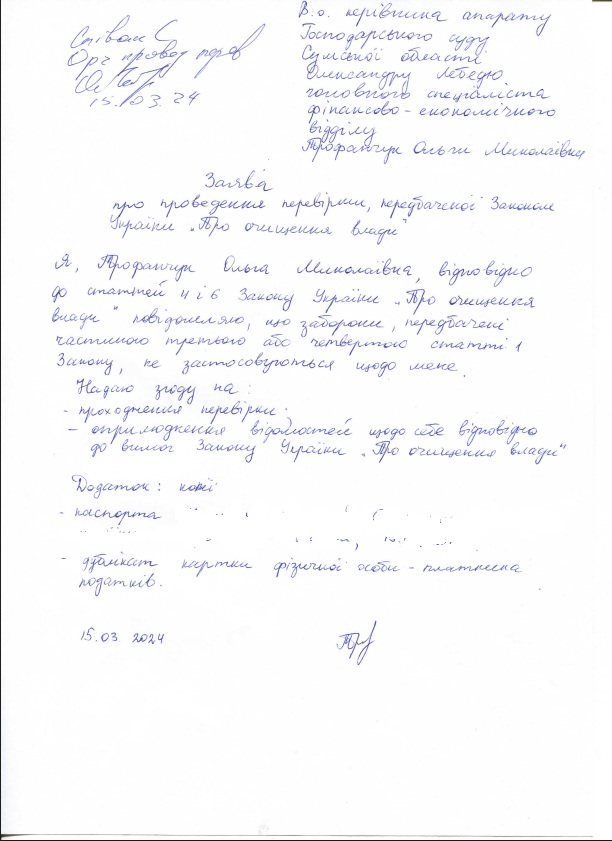 Співак С
Орг провод перев
15.03.24
В.о. керівника апарату
Господарського суду
Сумської області
Олександру Лебедю
головного спеціаліста
фінансово-економічного
відділу
Трофанчук Ольги Миколаївни
Заява
про проведення перевірки, передбаченої Законом
України „Про очищення влади"
Я, Трофанчук Ольга Миколаївна, відповідно
до статтей 4 і 6 Закону України „Про очищення
влади" повідомляю, що заборони, передбачені
частиною третьою або четвертою статті 1
Закону, не застосовуються щодо мене.
Надаю згоду на:
- проходження перевірки;
- оприлюднення відомостей щодо себе відповідно
до вимог Закону України „Про очищення влади"
Додаток: копії
- паспорта
- дублікат картки фізичної особи - платника
податків.
15.03.2024